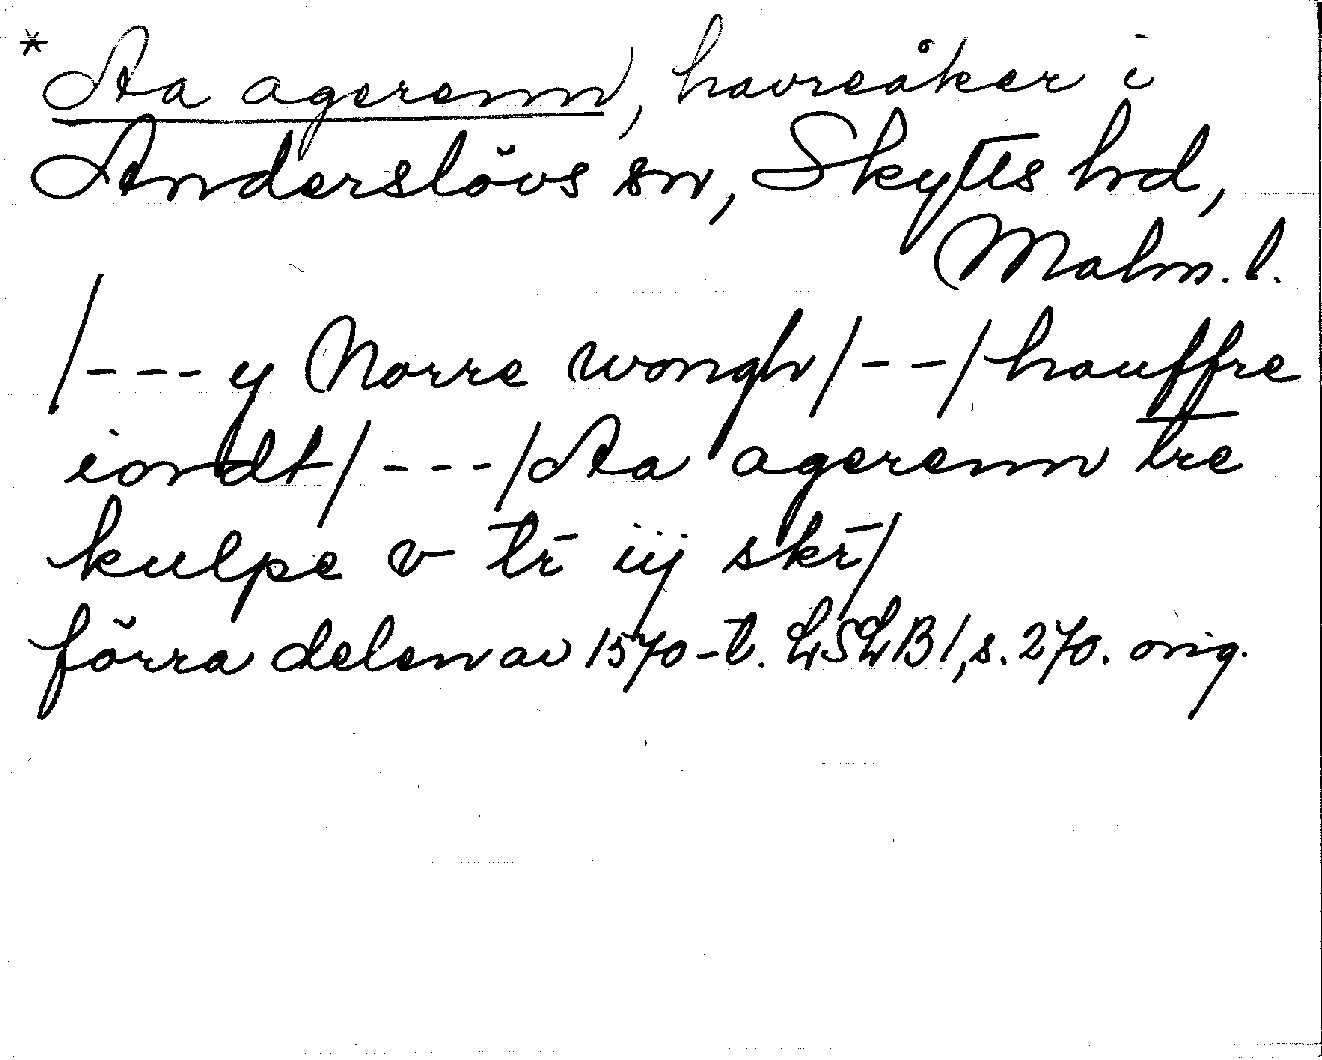 *Aa agerenn, havreåker i
Anderslövs sn, Skytts hd,
Malm. l.
/---y Norre wongh/--/hauffre
iordt/---/Aa agerenn tre
kulpe v tr iij skr/
förra delen av 1570-t. LSLB1, s. 270. orig.